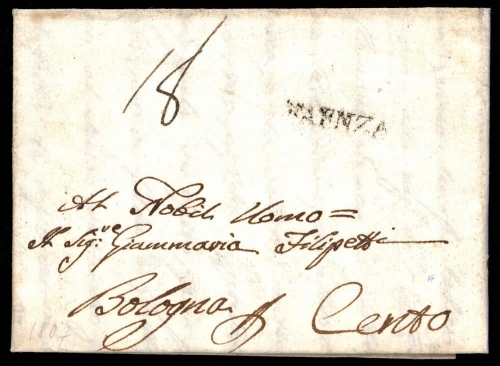 18
FAENZA
Al Nobil Uomo =
Il Sig.re Giammaria Filipetti
Bologna p Cento
1807